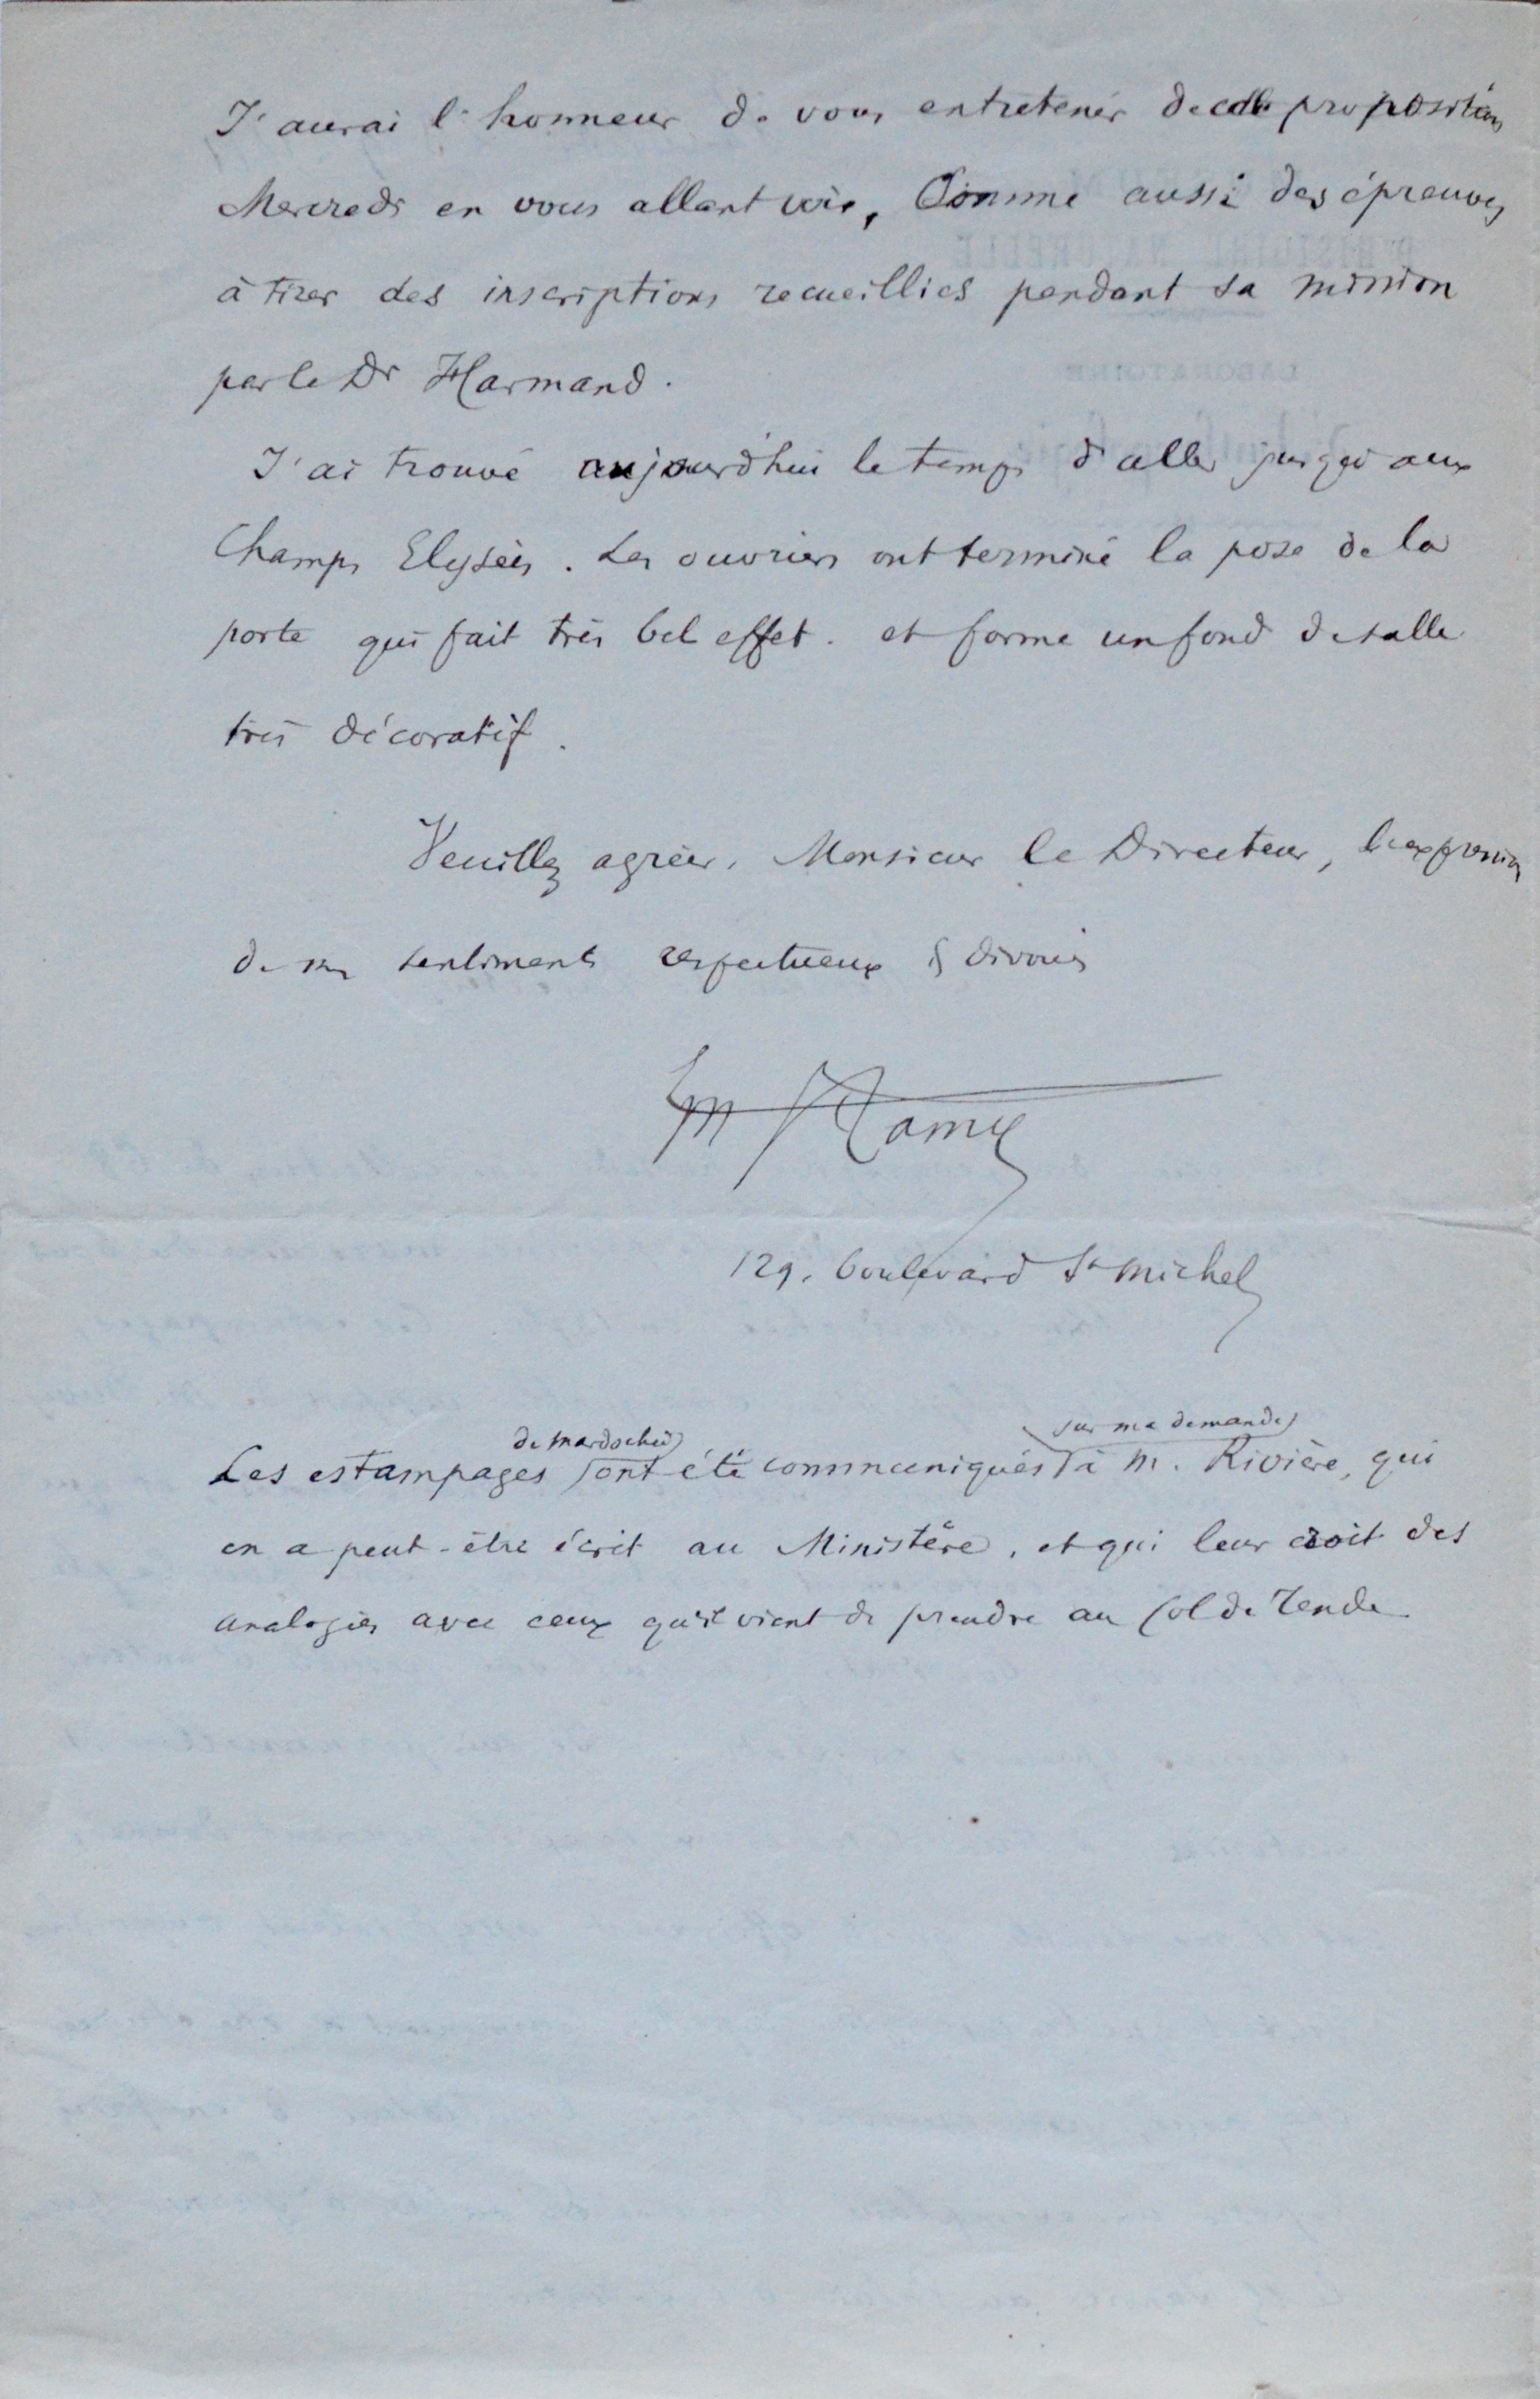 J'aurai l'honneur de vous entretenir de cette proposition
Mercredi en vous allant voir, Comme aussi des épreuves
à tirer des inscriptions recueillies pendant sa mission
par le Dr Harmand.
J'ai trouvé aujourd'hui le temps d'aller jusqu'aux
Champs Elysées. Les ouvriers ont terminé la pose de la
porte qui fait très bel effet. et forme un fond de salle
très décoratif.
Veuillez agréer, Monsieur le Directeur, l'expression
de mes sentiments respectueux & dévoués
Hamy
129, boulevard St Michel
de Mardochée sur ma demande
Les estampages ont été communiqués à M. Rivière, qui
en a peut-être écrit au Ministère, et qui leur croit des
analogies avec ceux qu'il vient de prendre au Col de Tende